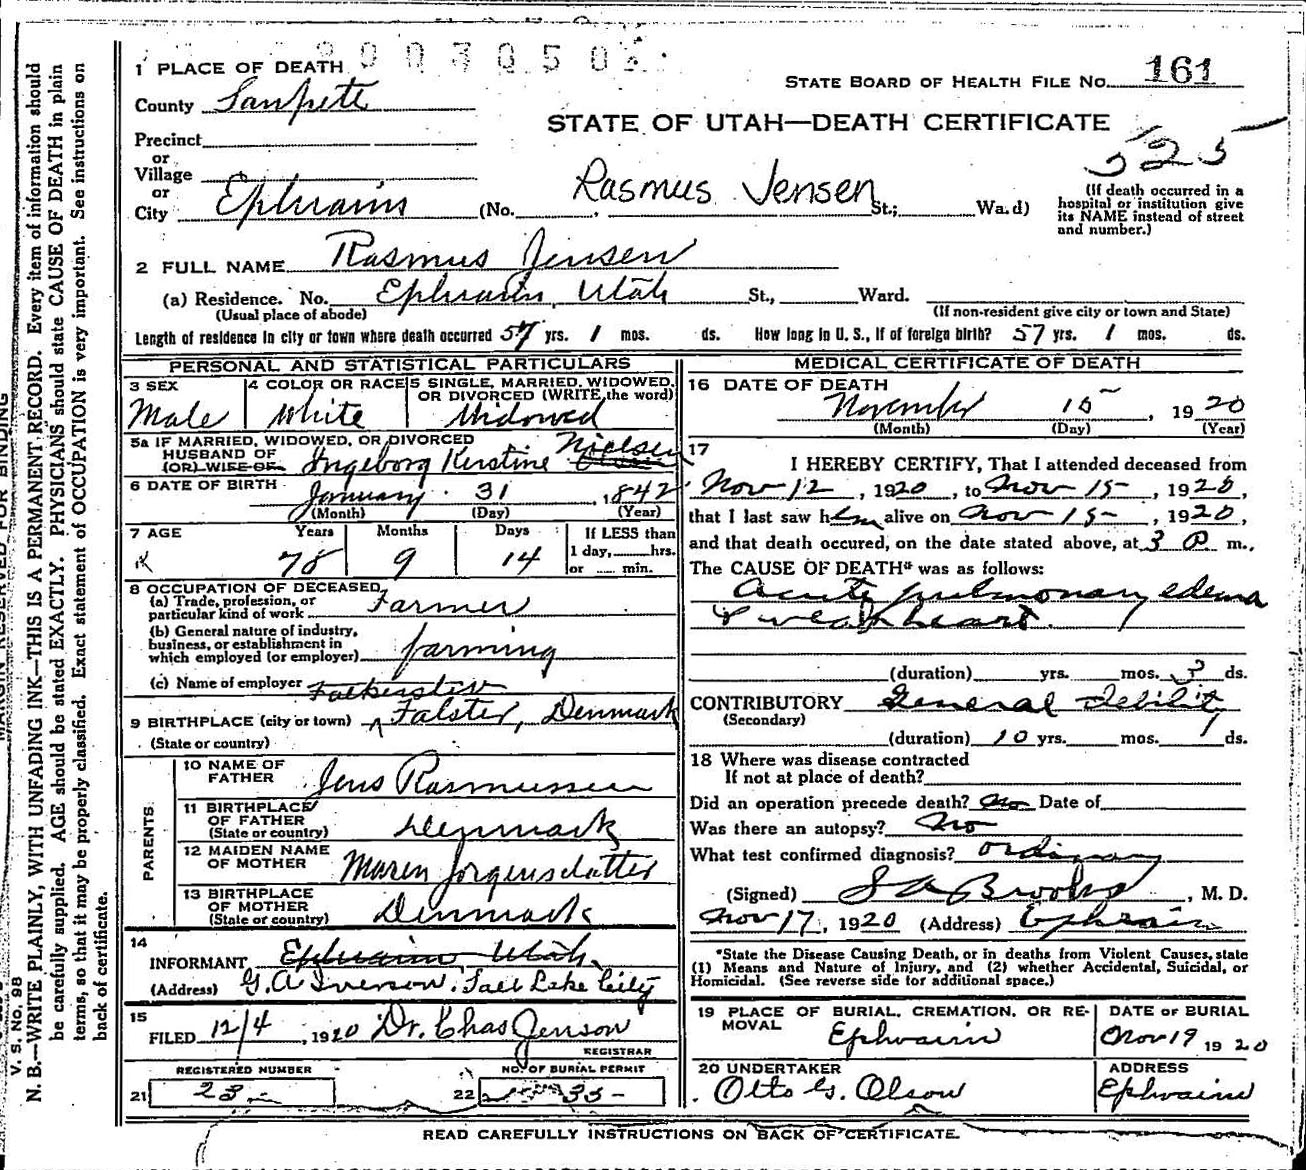 1 PLACE OF DEATH
3003050
STATE BOARD OF HEALTH FILE No. 161
County Sanpete
STATE OF UTAH—DEATH CERTIFICATE
525
Precinct
or
Village
or
City Ephraim (No. , Rasmus Jensen St.; Wa.d)
(If death occurred in a
hospital or institution give
its NAME instead of street
and number.)
2 FULL NAME Rasmus Jensen
(a) Residence. No. Ephraim, Utah St., Ward.
(Usual place of abode)
(If non-resident give city or town and State)
Length of residence in city or town where death occurred 57 yrs. 1 mos. ds. How long in U. S., if of foreign birth? 57 yrs. 1 mos. ds.
PERSONAL AND STATISTICAL PARTICULARS
3 SEX
Male
4 COLOR OR RACE
White
5 SINGLE, MARRIED, WIDOWED,
OR DIVORCED (WRITE the word)
Widowed
5a IF MARRIED, WIDOWED, OR DIVORCED
HUSBAND OF
(OR) WIFE OF
Ingeborg Kerstine Nielsen
6 DATE OF BIRTH January 31, 1842
(Month) (Day) (Year)
7 AGE Years Months Days If LESS than
1 day, hrs.
or min.
78 9 14
8 OCCUPATION OF DECEASED
(a) Trade, profession, or
particular kind of work Farmer
(b) General nature of industry,
business, or establishment in
which employed (or employer) farming
(c) Name of employer
9 BIRTHPLACE (city or town) Falster, Denmark
(State or country)
PARENTS
10 NAME OF
FATHER Jens Rasmussen
11 BIRTHPLACE
OF FATHER
(State or country) Denmark
12 MAIDEN NAME
OF MOTHER Maren Jorgensdatter
13 BIRTHPLACE
OF MOTHER
(State or country) Denmark
14
INFORMANT Ephraim Utah
(Address) G. A. Iverson, Salt Lake City
15
FILED 12/4, 1920 Dr. Chas Jenson
REGISTRAR
REGISTERED NUMBER
21 23
NO. OF BURIAL PERMIT
22 35
MEDICAL CERTIFICATE OF DEATH
16 DATE OF DEATH
November 15, 1920
(Month) (Day) (Year)
17
I HEREBY CERTIFY, That I attended deceased from
Nov 12, 1920, to Nov 15, 1920,
that I last saw him alive on Nov 15, 1920,
and that death occured, on the date stated above, at 3 P m.,
The CAUSE OF DEATH* was as follows:
Acute pulmonary edema
& weak heart.
(duration) yrs. mos. 3 ds.
CONTRIBUTORY General debility
(Secondary)
(duration) 10 yrs. mos. ds.
18 Where was disease contracted
If not at place of death?
Did an operation precede death? no Date of
Was there an autopsy? no
What test confirmed diagnosis? ordinary
(Signed) S A Brooks, M. D.
Nov 17, 1920 (Address) Ephraim
*State the Disease Causing Death, or in deaths from Violent Causes, state
(1) Means and Nature of Injury, and (2) whether Accidental, Suicidal, or
Homicidal. (See reverse side for additional space.)
19 PLACE OF BURIAL, CREMATION, OR RE-
MOVAL Ephraim
DATE OF BURIAL
Nov 19 1920
20 UNDERTAKER
Otto G. Olson
ADDRESS
Ephraim
READ CAREFULLY INSTRUCTIONS ON BACK OF CERTIFICATE.
MARGIN RESERVED FOR BINDING
V. S. No. 98
N. B.—WRITE PLAINLY, WITH UNFADING INK—THIS IS A PERMANENT RECORD. Every item of information should
be carefully supplied. AGE should be stated EXACTLY. PHYSICIANS should state CAUSE OF DEATH in plain
terms, so that it may be properly classified. Exact statement of OCCUPATION is very important. See instructions on
back of certificate.